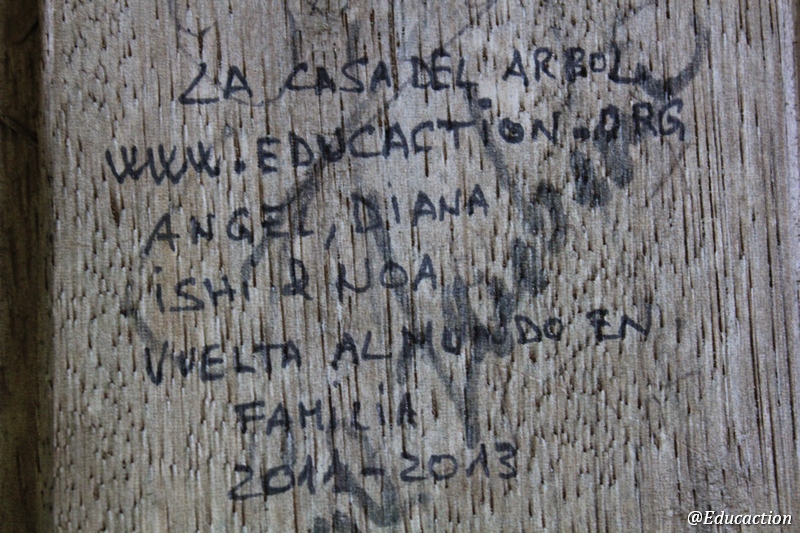 LA CASA DEL ARBOL
WWW.EDUCACTiON.ORG
ANGEL, DiANA
iSHi & NOA
VUELTA AL MUNDO EN
FAMiLiA
2011-2013
@Educaction